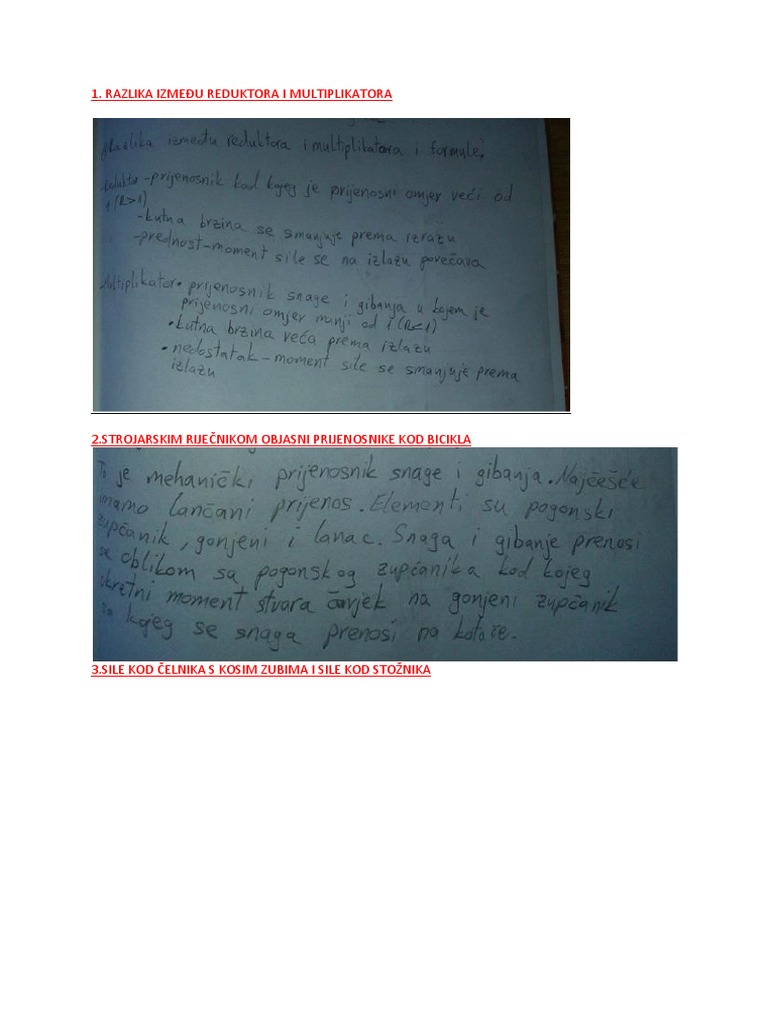 1. RAZLIKA IZMEĐU REDUKTORA I MULTIPLIKATORA
Razlika između reduktora i multiplikatora i formule?
Reduktor - prijenosnik kod kojeg je prijenosni omjer veći od
1 (R>1)
- kutna brzina se smanjuje prema izrazu
- prednost - moment sile se na izlazu povečava
Multiplikator • prijenosnik snage i gibanja u kojem je
prijenosni omjer manji od 1 (R<1)
• kutna brzina veća prema izlazu
• nedostatak - moment sile se smanjuje prema
izlazu
2.STROJARSKIM RIJEČNIKOM OBJASNI PRIJENOSNIKE KOD BICIKLA
To je mehanički prijenosnik snage i gibanja. Najčešće
imamo lančani prijenos. Elementi su pogonski
zupčanik, gonjeni i lanac. Snaga i gibanje prenosi
se oblikom sa pogonskog zupčanika kod kojeg
okretni moment stvara čovjek na gonjeni zupčanik
sa kojeg se snaga prenosi na kotače.
3.SILE KOD ČELNIKA S KOSIM ZUBIMA I SILE KOD STOŽNIKA